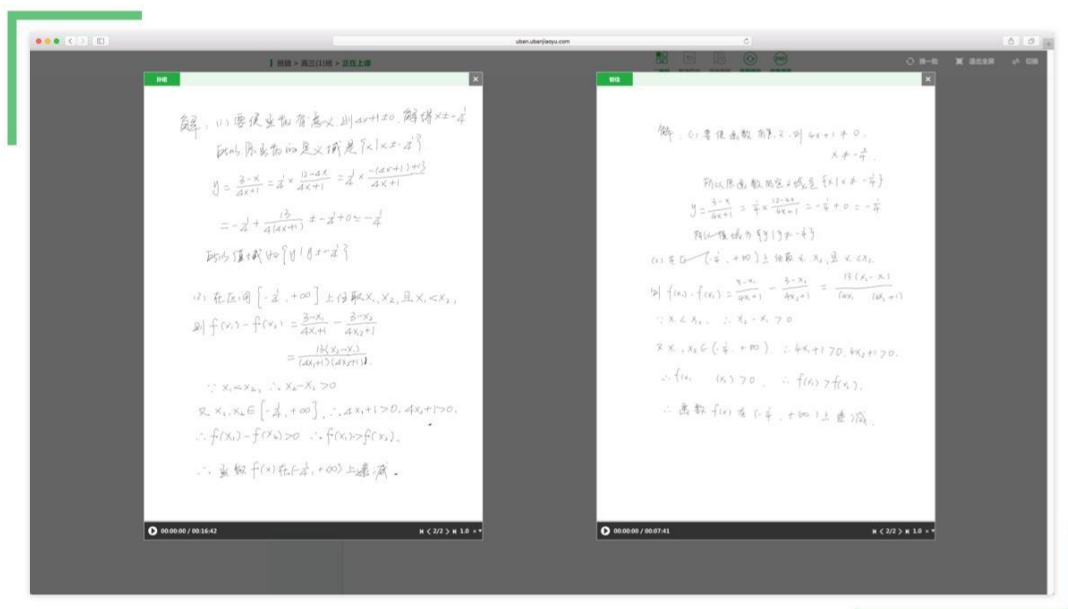 uban.ubanjiaoyu.com
班级 > 高三(1)班 > 正在上课
换一批
退出全屏
切换
解：(1)要使函数有意义，则4x+1≠0，解得x≠-1/4
所以原函数的定义域是{x|x≠-1/4}
y = (3-x)/(4x+1) = 1/4 × (12-4x)/(4x+1) = 1/4 × (-(4x+1)+13)/(4x+1)
= -1/4 + 13/(4(4x+1)) ≠ -1/4+0 = -1/4
所以值域为{y|y≠-1/4}
(2) 在区间[-1/4, +∞]上任取x₁, x₂, 且x₁<x₂,
则f(x₁)-f(x₂) = (3-x₁)/(4x₁+1) - (3-x₂)/(4x₂+1)
= 13(x₂-x₁)/((4x₁+1)(4x₂+1)).
∵ x₁<x₂, ∴ x₂-x₁>0
又x₁, x₂∈[-1/4, +∞], ∴ 4x₁+1>0, 4x₂+1>0,
∴ f(x₁)-f(x₂)>0 ∴ f(x₁)>f(x₂).
∴ 函数f(x)在(-1/4, +∞)上递减.
00:00:00 / 00:16:42
2/2
1.0 ×
解：(1)要使函数有意义，则4x+1≠0,
x≠-1/4.
所以原函数的定义域是{x|x≠-1/4}
y = (3-x)/(4x+1) = 1/4 × (12-4x)/(4x+1) = -1/4+0 = -1/4
所以值域为{y|y≠-1/4}
(2) 在(-1/4, +∞)上任取x₁ x₂, 且x₁<x₂.
则f(x₁)-f(x₂) = (3-x₁)/(4x₁+1) - (3-x₂)/(4x₂+1) = 13(x₂-x₁)/(4x₁ (4x₂+1)
∵ x₁<x₂, ∴ x₂-x₁>0
又x₁, x₂∈(-1/4, +∞). ∴ 4x₁+1>0, 4x₂+1>0.
∴ f(x₁ (x₂)>0. ∴ f(x₁)>f(x₂).
∴ 函数f(x)在(-1/4, +∞)上递减.
00:00:00 / 00:07:41
2/2
1.0 ×